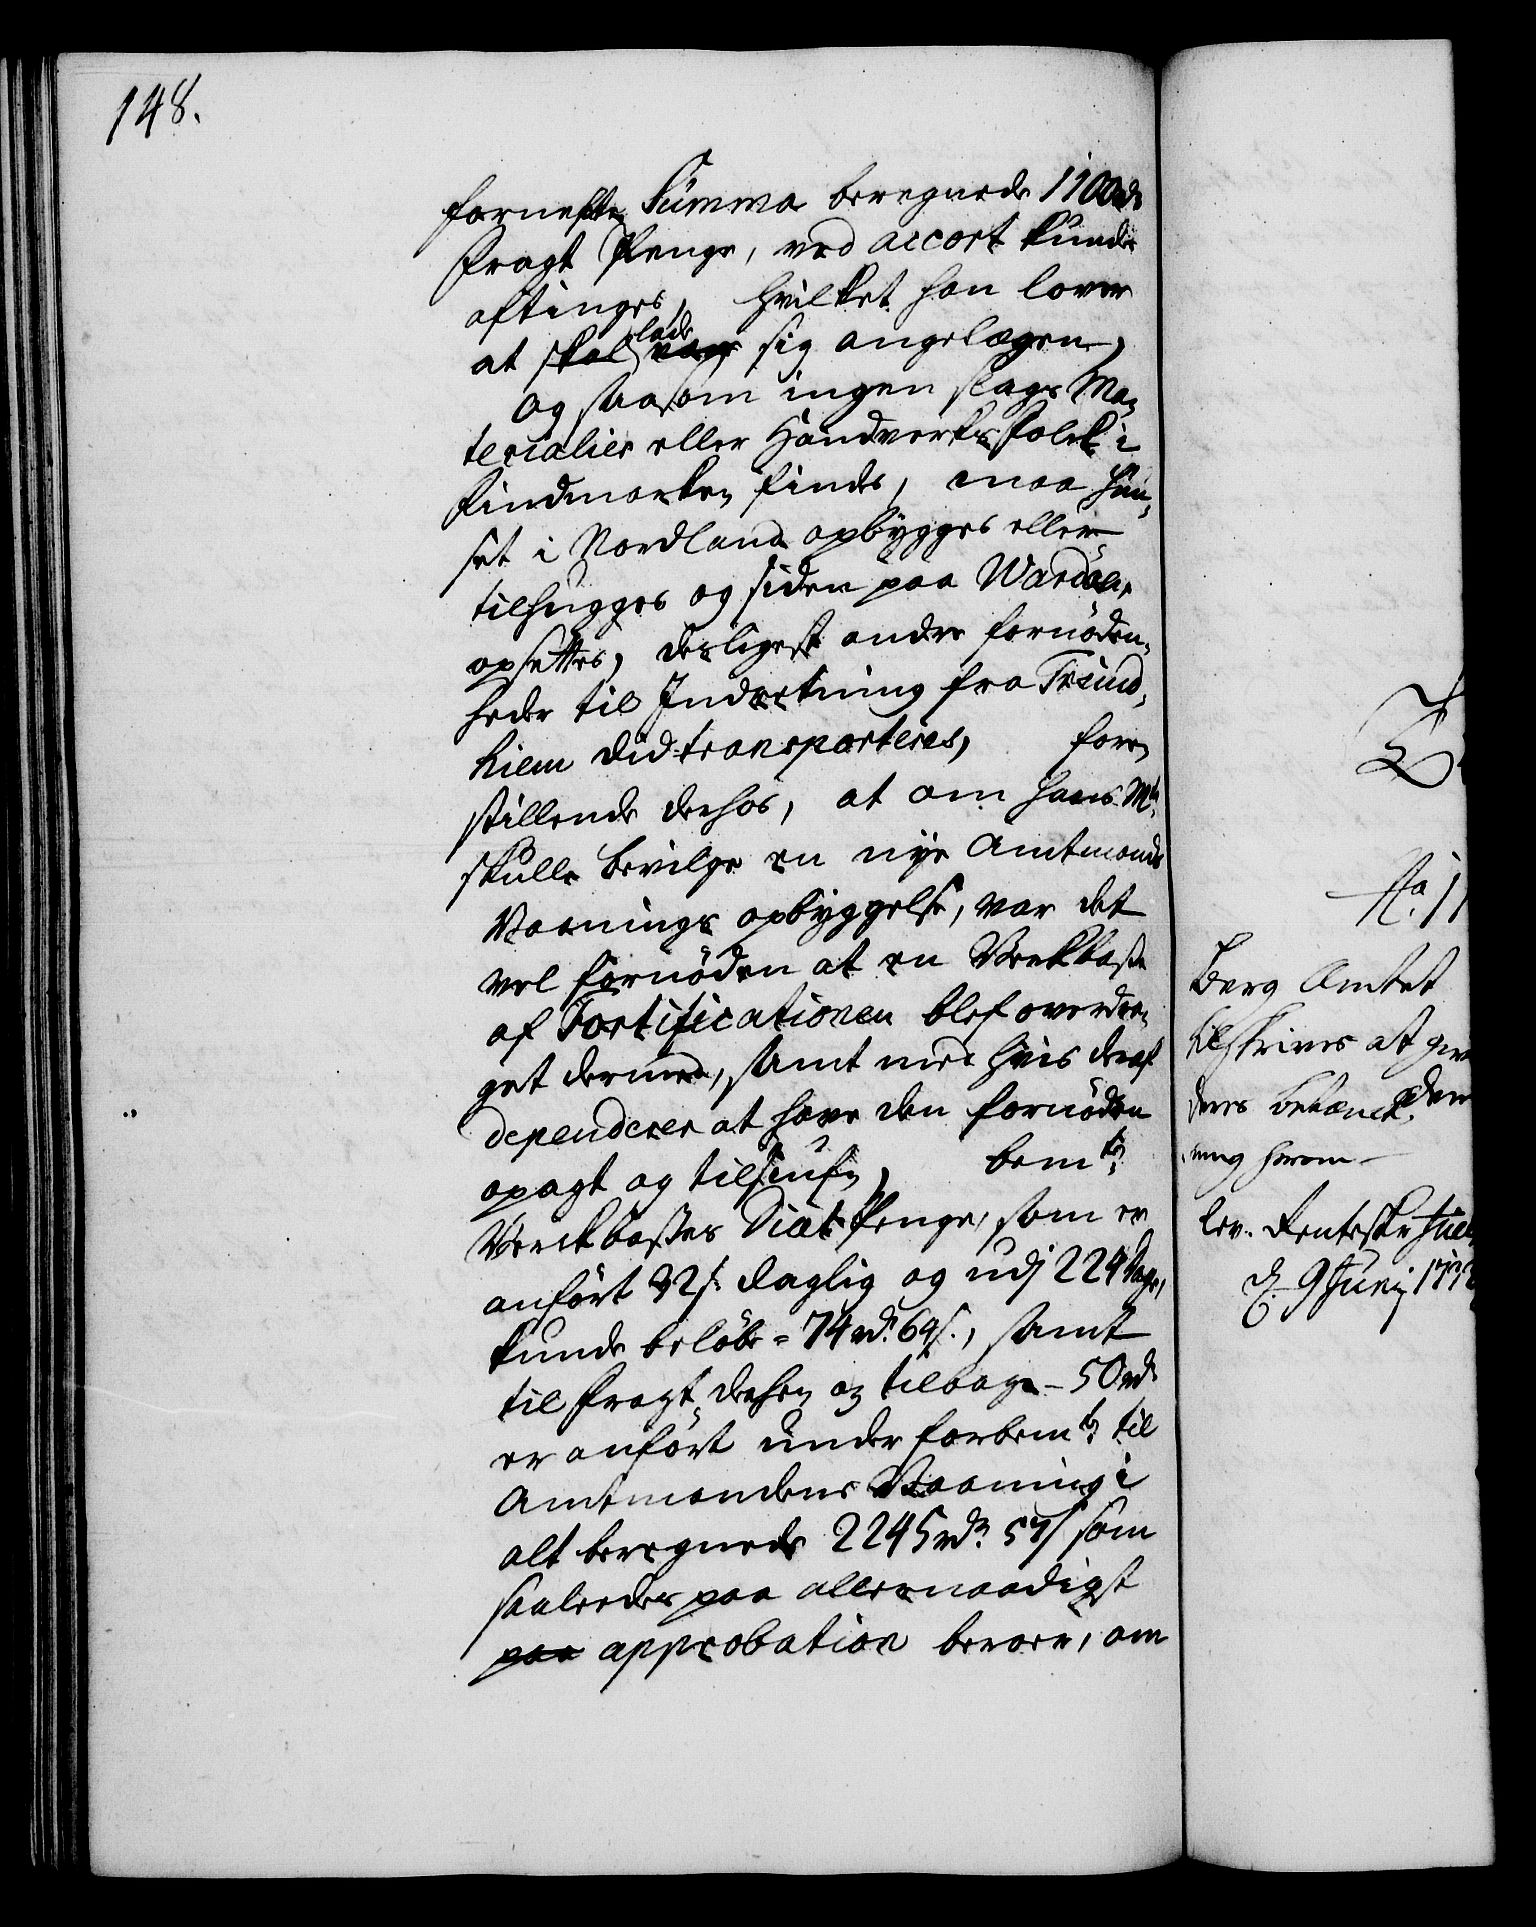 148.
fornefnte Summa beregnede 1100 rdr
fragt Penge, ved accort kunde
aftinges, hvilket han lover
at skal lade være sig angelægen,
og saasom ingen slags Ma-
terialier eller Handverksfolck i
Findmarken findes, maa Huu-
set i Nordland opbygges eller
tilhugges og siden paa Wardøe,
opsettes, desligest andre fornøden-
heder til Indretning fra Trund-
hiem did transporteres, fore-
stillende derhos, at om Hans Mt:
skulle bevilge en nye Amtmands
Vaanings opbyggelse, var det
vel fornøden at en Werkbasse
af Fortificationen blef overdra-
get dermed, samt med hvis deraf
dependerer at have den fornøden
opagt og tilsiufn, bemte
Werckbasses Diæt Penge, som er
anført 32 s. daglig og udj 224 dage,
kunde beløbe = 74 rdr. 64 s., samt
til fragt derhen og tilbage - 50 rdr
er anført under forbemte til
Amtmandens Vaaning i
alt beregnede 2245 rdr. 57 s som
saaledes paa allernaadigst
paa approbation beroer, om
No. 11
Berg Amtet
tilskrives at give
deres betænck-
ning herom
lev. Renteskr
d. 9 Junij 173